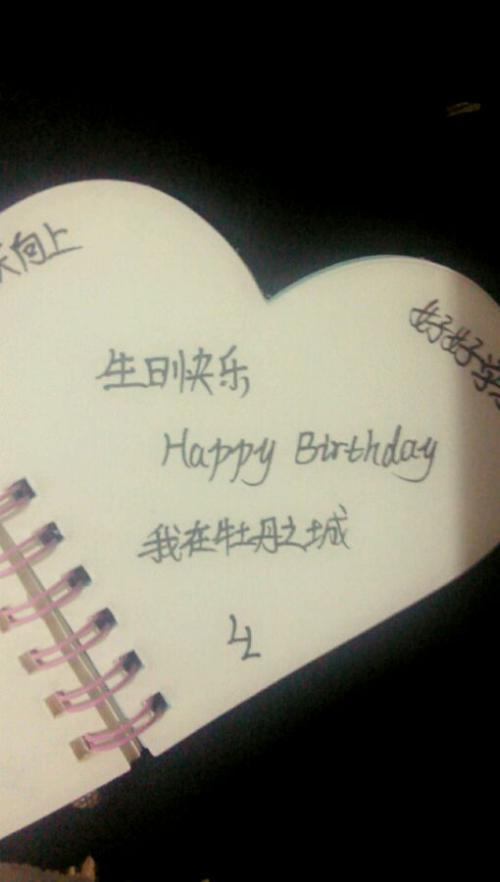 天向上
好好学
生日快乐
Happy Birthday
我在牡丹之城